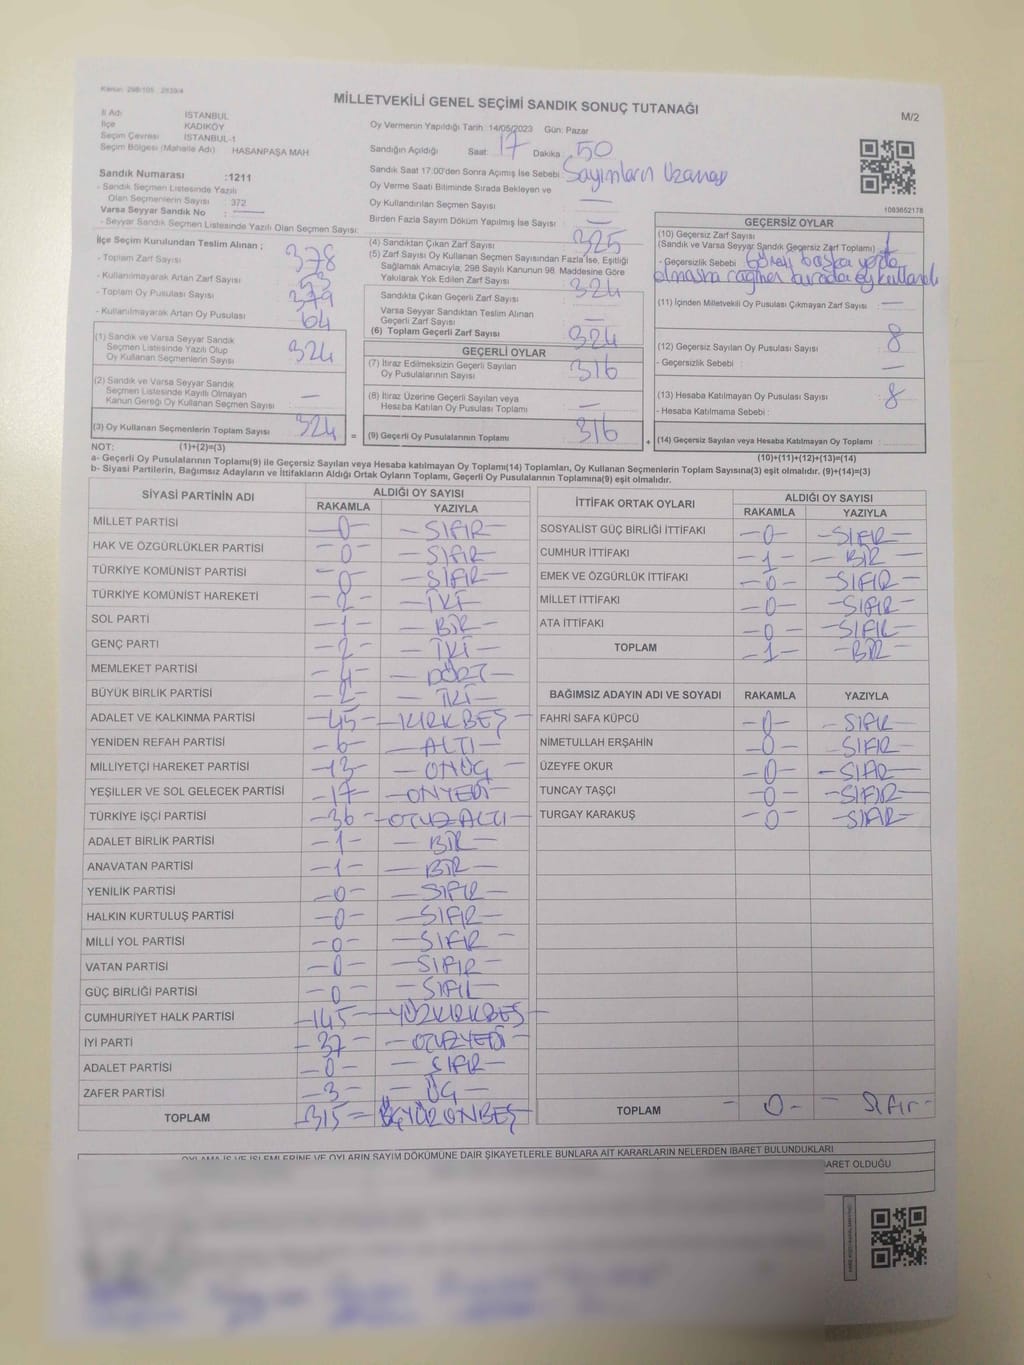 Kanun: 298/105 2839/4
MİLLETVEKİLİ GENEL SEÇİMİ SANDIK SONUÇ TUTANAĞI
M/2
İl Adı : İSTANBUL
İlçe : KADIKÖY
Seçim Çevresi : İSTANBUL-1
Seçim Bölgesi (Mahalle Adı) HASANPAŞA MAH
Sandık Numarası :1211
- Sandık Seçmen Listesinde Yazılı
Olan Seçmenlerin Sayısı : 372
Varsa Seyyar Sandık No :
- Seyyar Sandık Seçmen Listesinde Yazılı Olan Seçmen Sayısı:
Oy Vermenin Yapıldığı Tarih: 14/05/2023 Gün: Pazar
Sandığın Açıldığı Saat: 17 Dakika: 50
Sandık Saat 17:00'den Sonra Açımış İse Sebebi: Sayımların Uzaması
Oy Verme Saati Bitiminde Sırada Bekleyen ve
Oy Kullandırılan Seçmen Sayısı : —
Birden Fazla Sayım Döküm Yapılmış İse Sayısı : —
1083652178
İlçe Seçim Kurulundan Teslim Alınan ;
- Toplam Zarf Sayısı : 378
- Kullanılmayarak Artan Zarf Sayısı : 53
- Toplam Oy Pusulası Sayısı : 379
- Kullanılmayarak Artan Oy Pusulası : 64
(1) Sandık ve Varsa Seyyar Sandık
Seçmen Listesinde Yazılı Olup
Oy Kullanan Seçmenlerin Sayısı : 324
(2) Sandık ve Varsa Seyyar Sandık
Seçmen Listesinde Kayıtlı Olmayan
Kanun Gereği Oy Kullanan Seçmen Sayısı : —
(3) Oy Kullanan Seçmenlerin Toplam Sayısı : 324
(4) Sandıktan Çıkan Zarf Sayısı : 325
(5) Zarf Sayısı Oy Kullanan Seçmen Sayısından Fazla İse, Eşitliği
Sağlamak Amacıyla, 298 Sayılı Kanunun 98. Maddesine Göre
Yakılarak Yok Edilen Zarf Sayısı :
Sandıkta Çıkan Geçerli Zarf Sayısı : 324
Varsa Seyyar Sandıktan Teslim Alınan
Geçerli Zarf Sayısı : —
(6) Toplam Geçerli Zarf Sayısı : 324
GEÇERLİ OYLAR
(7) İtiraz Edilmeksizin Geçerli Sayılan
Oy Pusulalarının Sayısı : 316
(8) İtiraz Üzerine Geçerli Sayılan veya
Hesaba Katılan Oy Pusulası Toplamı : —
= (9) Geçerli Oy Pusulalarının Toplamı : 316 +
GEÇERSİZ OYLAR
(10) Geçersiz Zarf Sayısı
(Sandık ve Varsa Seyyar Sandık Geçersiz Zarf Toplamı) : 1
- Geçersizlik Sebebi : Görevi başka yerde
olmasına rağmen burada oy kullandı
(11) İçinden Milletvekili Oy Pusulası Çıkmayan Zarf Sayısı : —
(12) Geçersiz Sayılan Oy Pusulası Sayısı : 8
- Geçersizlik Sebebi : —
(13) Hesaba Katılmayan Oy Pusulası Sayısı : 8
- Hesaba Katılmama Sebebi :
(14) Geçersiz Sayılan veya Hesaba Katılmayan Oy Toplamı :
NOT: (1)+(2)=(3)
(10)+(11)+(12)+(13)=(14)
a- Geçerli Oy Pusulalarının Toplamı(9) ile Geçersiz Sayılan veya Hesaba katılmayan Oy Toplamı(14) Toplamları, Oy Kullanan Seçmenlerin Toplam Sayısına(3) eşit olmalıdır. (9)+(14)=(3)
b- Siyasi Partilerin, Bağımsız Adayların ve İttifakların Aldığı Ortak Oyların Toplamı, Geçerli Oy Pusulalarının Toplamına(9) eşit olmalıdır.
SİYASİ PARTİNİN ADI ALDIĞI OY SAYISI
RAKAMLA YAZIYLA
MİLLET PARTİSİ —0— —SIFIR—
HAK VE ÖZGÜRLÜKLER PARTİSİ —0— —SIFIR—
TÜRKİYE KOMÜNİST PARTİSİ —0— —SIFIR—
TÜRKİYE KOMÜNİST HAREKETİ —2— —İKİ—
SOL PARTİ —1— —BİR—
GENÇ PARTİ —2— —İKİ—
MEMLEKET PARTİSİ —4— —DÖRT—
BÜYÜK BİRLİK PARTİSİ —2— —İKİ—
ADALET VE KALKINMA PARTİSİ —45— —KIRKBEŞ—
YENİDEN REFAH PARTİSİ —6— —ALTI—
MİLLİYETÇİ HAREKET PARTİSİ —13— —ONÜÇ—
YEŞİLLER VE SOL GELECEK PARTİSİ —17— —ONYEDİ—
TÜRKİYE İŞÇİ PARTİSİ —36— —OTUZALTI—
ADALET BİRLİK PARTİSİ —1— —BİR—
ANAVATAN PARTİSİ —1— —BİR—
YENİLİK PARTİSİ —0— —SIFIR—
HALKIN KURTULUŞ PARTİSİ —0— —SIFIR—
MİLLİ YOL PARTİSİ —0— —SIFIR—
VATAN PARTİSİ —0— —SIFIR—
GÜÇ BİRLİĞİ PARTİSİ —0— —SIFIR—
CUMHURİYET HALK PARTİSİ —145— —YÜZKIRKBEŞ—
İYİ PARTİ —37— —OTUZYEDİ—
ADALET PARTİSİ —0— —SIFIR—
ZAFER PARTİSİ —3— —ÜÇ—
TOPLAM —315— ÜÇYÜZONBEŞ
İTTİFAK ORTAK OYLARI ALDIĞI OY SAYISI
RAKAMLA YAZIYLA
SOSYALİST GÜÇ BİRLİĞİ İTTİFAKI —0— —SIFIR—
CUMHUR İTTİFAKI —1— —BİR—
EMEK VE ÖZGÜRLÜK İTTİFAKI —0— —SIFIR—
MİLLET İTTİFAKI —0— —SIFIR—
ATA İTTİFAKI —0— —SIFIR—
TOPLAM —1— —BİR—
BAĞIMSIZ ADAYIN ADI VE SOYADI RAKAMLA YAZIYLA
FAHRİ SAFA KÜPCÜ —0— —SIFIR—
NİMETULLAH ERŞAHİN —0— —SIFIR—
ÜZEYFE OKUR —0— —SIFIR—
TUNCAY TAŞÇI —0— —SIFIR—
TURGAY KARAKUŞ —0— —SIFIR—
TOPLAM —0— —SIFIR—
OYLAMA İŞ VE İŞLEMLERİNE VE OYLARIN SAYIM DÖKÜMÜNE DAİR ŞİKAYETLERLE BUNLARA AİT KARARLARIN NELERDEN İBARET BULUNDUKLARI
BARET OLDUĞU